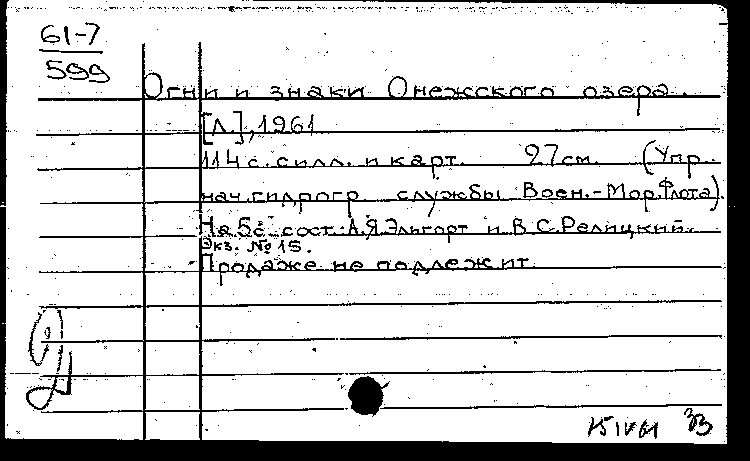 61-7
599
Огни и знаки Онежского озера.
[Л.], 1961
114 с. с илл. и карт. 27 см. (Упр.
нач. гидрогр. службы Воен.-Мор. Флота).
На 5 с. сост.: А.Я. Эльгорт и В.С. Релицкий.
Экз. № 15.
Продаже не подлежит.
15 IV 61